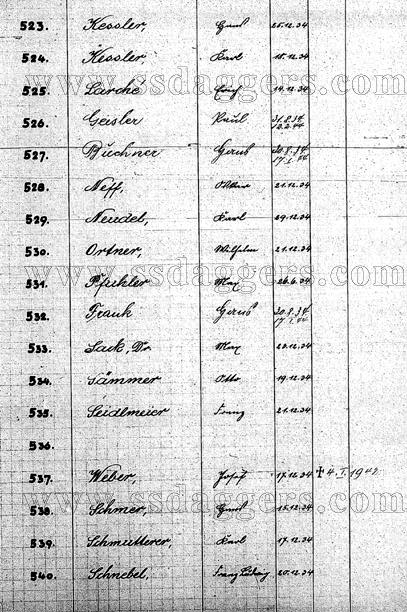 523. Kessler, Hans 25.12.34
524. Kessler, Karl 15.12.34
www.ssdaggers.com
525. Larché Erich 19.12.34
526. Geisler Paul 31.8.34
527. Buchner Hans 30.8.34
17.1.44
528. Neff, 21.12.34
529. Neudel, Karl 29.12.34
530. Ortner, Wilhelm 21.12.34
www.ssdaggers.com
531. Pfuhler Max 26.6.34
532. Frank Hans 30.8.34
17.1.44
533. Sack, Dr. Max 22.12.34
534. Sämmer Otto 19.12.34
535. Seidlmeier Franz 21.12.34
536.
537. Weber, Josef 17.12.34 † 4.I.1942
www.ssdaggers.com
538. Schmer, Hans 15.12.34
539. Schmutterer, Karl 17.12.34
540. Schnebel, Franz Ludwig 20.12.34